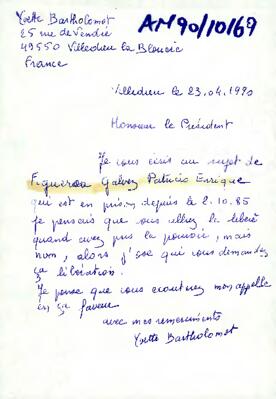 Yvette Bartholomot
25 rue de Vendée
49550 Villedieu la Blouère
France
AN90/10/69
Villedieu le 23.04.1990
Monsieur le Président
Je vous écris au sujet de
Figueroa Galvez Patricio Enrique
qui est en prison depuis le 2.10.85
Je pensais que vous alliez le libéré
quand avez pris le pouvoir, mais
non, alors j'ose que vous demandez
sa libération.
Je pense que vous écouterez mon appelle
en sa faveur
avec mes remerciements
Yvette Bartholomot